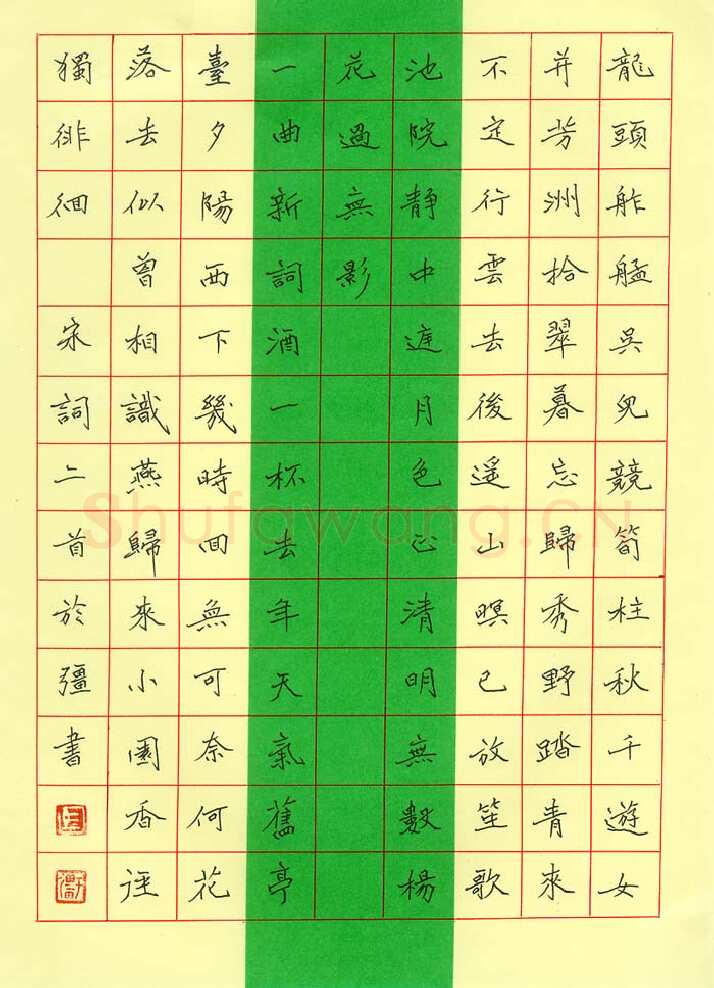 龍頭舴艋吳兒競筍柱秋千遊女
并芳洲拾翠暮忘歸秀野踏青來
不定行雲去後遥山暝已放笙歌
池院靜中庭月色正清明無數楊
花過無影
一曲新詞酒一杯去年天氣舊亭
臺夕陽西下幾時回無可奈何花
落去似曾相識燕歸來小園香徑
獨徘徊 宋詞二首於疆書
Shufawang.CN